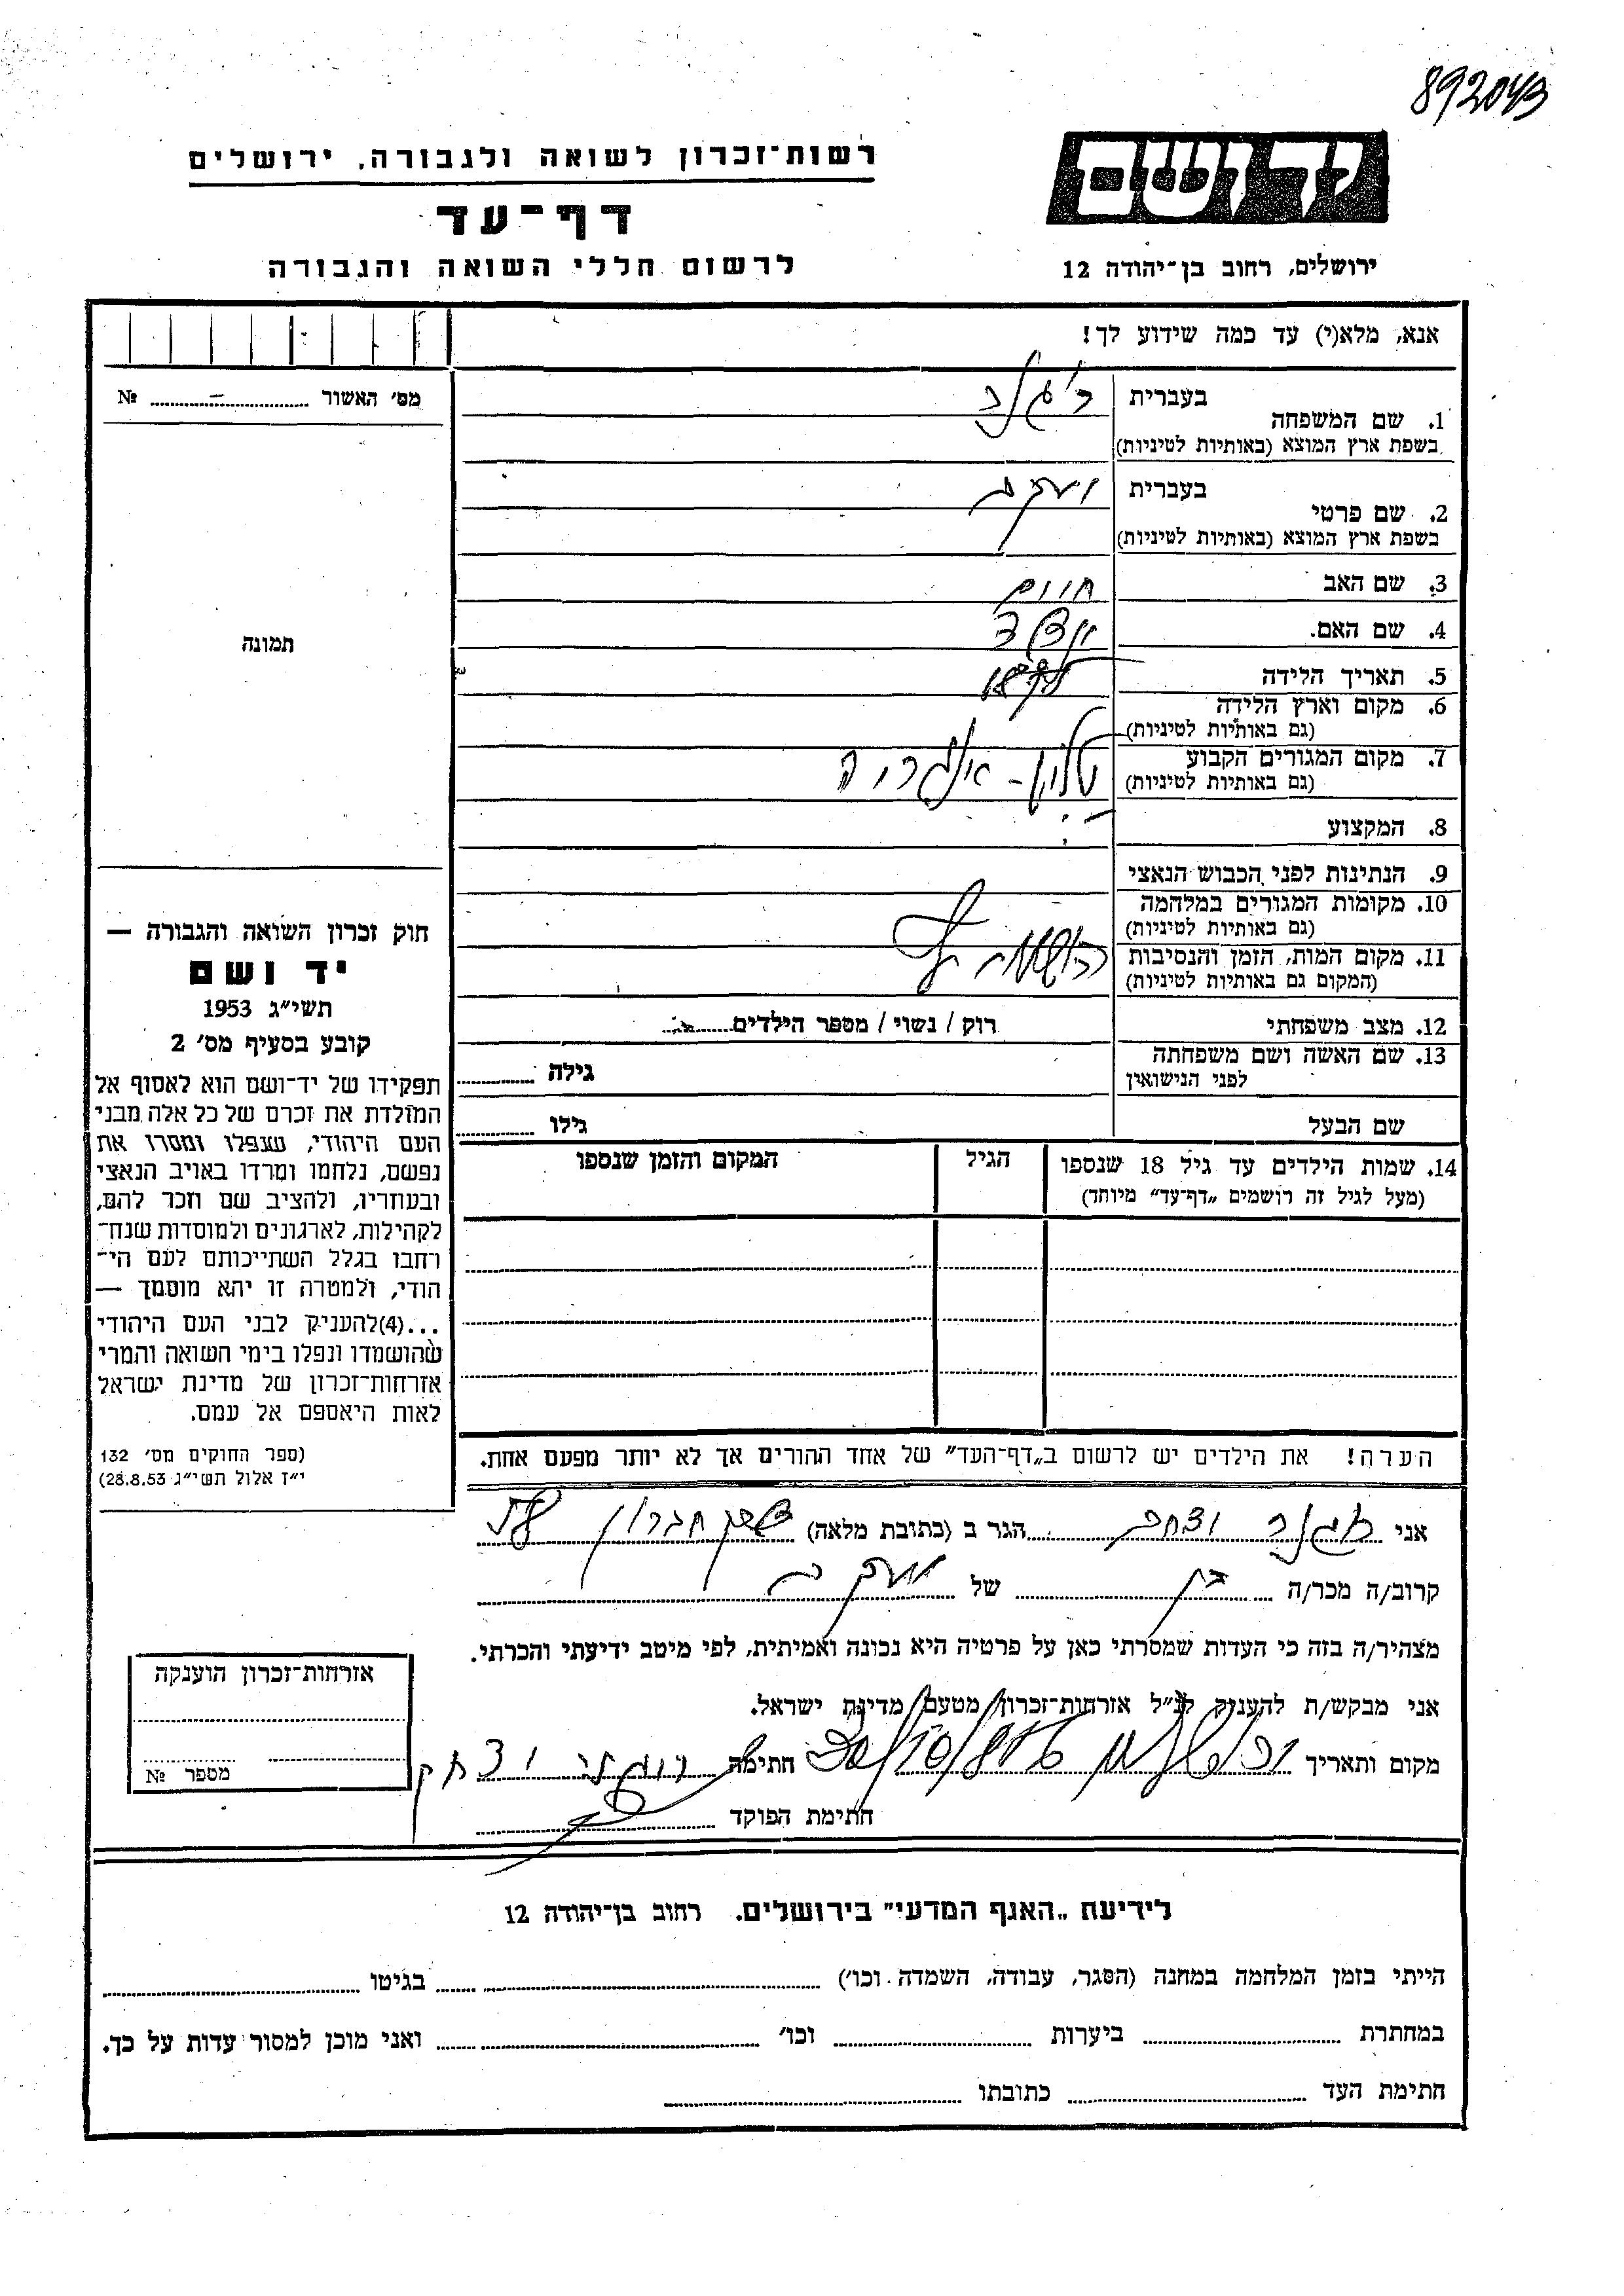 892043
רשות־זכרון לשואה ולגבורה. ירושלים
יד ושם
דף־עד
לרשום חללי השואה והגבורה
ירושלים, רחוב בן־יהודה 12
אנא, מלא(י) עד כמה שידוע לך!
מס׳ האשור № –
1. שם המשפחה
בעברית
בשפת ארץ המוצא (באותיות לטיניות)
2. שם פרטי
בעברית יעקב
בשפת ארץ המוצא (באותיות לטיניות)
3. שם האב חיים
4. שם האם.
5. תאריך הלידה
6. מקום וארץ הלידה
(גם באותיות לטיניות)
7. מקום המגורים הקבוע
(גם באותיות לטיניות)
8. המקצוע
9. הנתינות לפני הכבוש הנאצי
10. מקומות המגורים במלחמה
(גם באותיות לטיניות)
11. מקום המות, הזמן והנסיבות
(המקום גם באותיות לטיניות)
12. מצב משפחתי רוק / נשוי / מספר הילדים
13. שם האשה ושם משפחתה
לפני הנישואין גילה
שם הבעל גילו
14. שמות הילדים עד גיל 18 שנספו
(מעל לגיל זה רושמים „דף־עד״ מיוחד)
הגיל
המקום והזמן שנספו
תמונה
חוק זכרון השואה והגבורה —
יד ושם
תשי״ג 1953
קובע בסעיף מס׳ 2
תפקידו של יד־ושם הוא לאסוף אל
המולדת את זכרם של כל אלה מבני
העם היהודי, שנפלו ומסרו את
נפשם, נלחמו ומרדו באויב הנאצי
ובעוזריו, ולהציב שם וזכר להם,
לקהילות, לארגונים ולמוסדות שנח־
רבו בגלל השתייכותם לעם הי־
הודי, ולמטרה זו יהא מוסמך —
...(4)להעניק לבני העם היהודי
שהושמדו ונפלו בימי השואה והמרי
אזרחות־זכרון של מדינת ישראל
לאות היאספם אל עמם.
(ספר החוקים מס׳ 132
י״ז אלול תשי״ג 28.8.53)
הערה! את הילדים יש לרשום ב„דף־העד״ של אחד ההורים אך לא יותר מפעם אחת.
אני יצחק הגר ב (כתובת מלאה) חברון
קרוב/ה מכר/ה בן של יעקב
מצהיר/ה בזה כי העדות שמסרתי כאן על פרטיה היא נכונה ואמיתית, לפי מיטב ידיעתי והכרתי.
אני מבקש/ת להעניק לנ״ל אזרחות־זכרון מטעם מדינת ישראל.
מקום ותאריך חתימה יצחק
חתימת הפוקד
אזרחות־זכרון הוענקה
מספר №
לידיעת „האגף המדעי״ בירושלים. רחוב בן־יהודה 12
הייתי בזמן המלחמה במחנה (הסגר, עבודה, השמדה וכו׳) בגיטו
במחתרת ביערות וכו׳ ואני מוכן למסור עדות על כך.
חתימת העד כתובתו